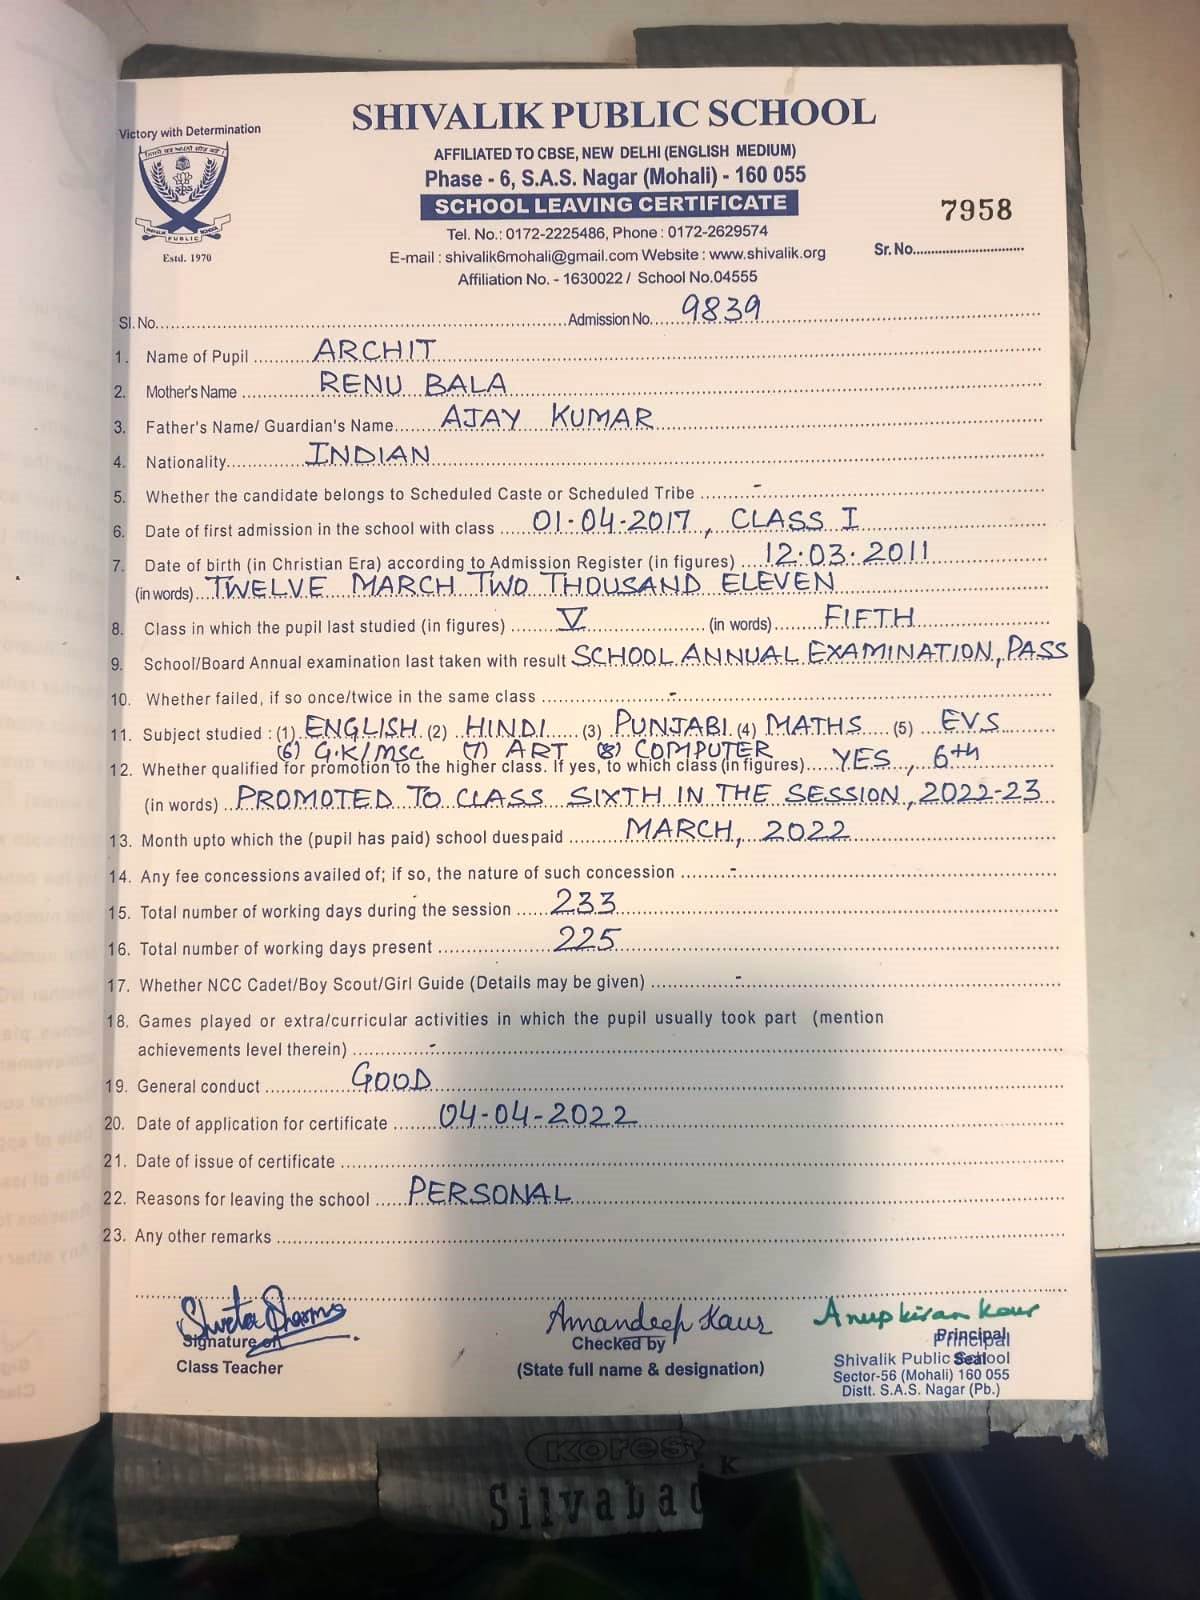 SHIVALIK PUBLIC SCHOOL
Victory with Determination
AFFILIATED TO CBSE, NEW DELHI (ENGLISH MEDIUM)
Phase - 6, S.A.S. Nagar (Mohali) - 160 055
SCHOOL LEAVING CERTIFICATE
7958
Tel. No.: 0172-2225486, Phone : 0172-2629574
E-mail : shivalik6mohali@gmail.com Website : www.shivalik.org
Sr. No.
PUBLIC
Estd. 1970
Affiliation No. - 1630022 / School No.04555
Sl. No. Admission No. 9839
1. Name of Pupil ARCHIT
2. Mother's Name RENU BALA
3. Father's Name/ Guardian's Name AJAY KUMAR
4. Nationality INDIAN
5. Whether the candidate belongs to Scheduled Caste or Scheduled Tribe -
6. Date of first admission in the school with class 01-04-2017, CLASS I
7. Date of birth (in Christian Era) according to Admission Register (in figures) 12.03.2011
(in words) TWELVE MARCH TWO THOUSAND ELEVEN
8. Class in which the pupil last studied (in figures) V (in words) FIFTH
9. School/Board Annual examination last taken with result SCHOOL ANNUAL EXAMINATION, PASS
10. Whether failed, if so once/twice in the same class -
11. Subject studied : (1) ENGLISH (2) HINDI (3) PUNJABI (4) MATHS (5) EVS
(6) G.K/MSC (7) ART (8) COMPUTER
12. Whether qualified for promotion to the higher class. If yes, to which class (in figures) YES, 6th
(in words) PROMOTED TO CLASS SIXTH IN THE SESSION, 2022-23
13. Month upto which the (pupil has paid) school duespaid MARCH, 2022
14. Any fee concessions availed of; if so, the nature of such concession -
15. Total number of working days during the session 233
16. Total number of working days present 225
17. Whether NCC Cadet/Boy Scout/Girl Guide (Details may be given) -
18. Games played or extra/curricular activities in which the pupil usually took part (mention
achievements level therein) -
19. General conduct GOOD
20. Date of application for certificate 04-04-2022
21. Date of issue of certificate
22. Reasons for leaving the school PERSONAL
23. Any other remarks
Shweta Sharma Amandeep Kaur Anupkiran Kaur
Signature of Checked by Principal
Class Teacher (State full name & designation) Shivalik Public School
Seal
Sector-56 (Mohali) 160 055
Distt. S.A.S. Nagar (Pb.)
kores
Silvabad